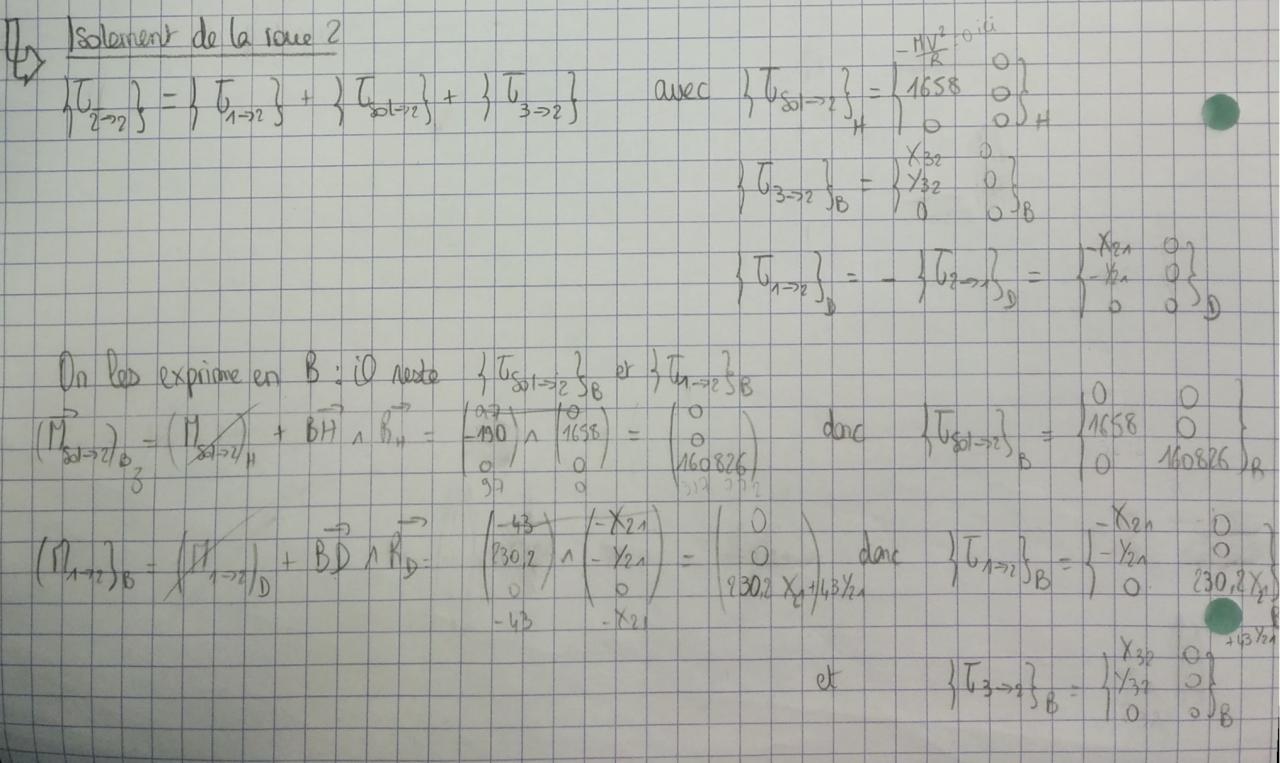 Isolement de la roue 2
{τ2→2} = {τ1→2} + {τsol→2} + {τ3→2} avec {τsol→2}H = { -MV²/R : 0 ici 0 ; 1658 0 ; 0 0 }H
{τ3→2}B = { X32 0 ; Y32 0 ; 0 0 }B
{τ1→2}D = - {τ2→1}D = { -X21 0 ; -Y21 0 ; 0 0 }D
On les exprime en B : il reste {τsol→2}B et {τ1→2}B
(Msol→2)B = (Msol→2)H + BH ∧ RH = ( 97 ; -190 ; 0 ) ∧ ( 0 ; 1658 ; 0 ) = ( 0 ; 0 ; 160826 ) donc {τsol→2}B = { 0 0 ; 1658 0 ; 0 160826 }B
3 97 0
(M1→2)B = (M1→2)D + BD ∧ RD = ( -43 ; 230,2 ; 0 ) ∧ ( -X21 ; -Y21 ; 0 ) = ( 0 ; 0 ; 230,2 X21 + 43 Y21 ) donc {τ1→2}B = { -X21 0 ; -Y21 0 ; 0 230,2 X2 + 43 Y21
-43 -X21
et {τ3→2}B = { X32 0 ; Y32 0 ; 0 0 }B